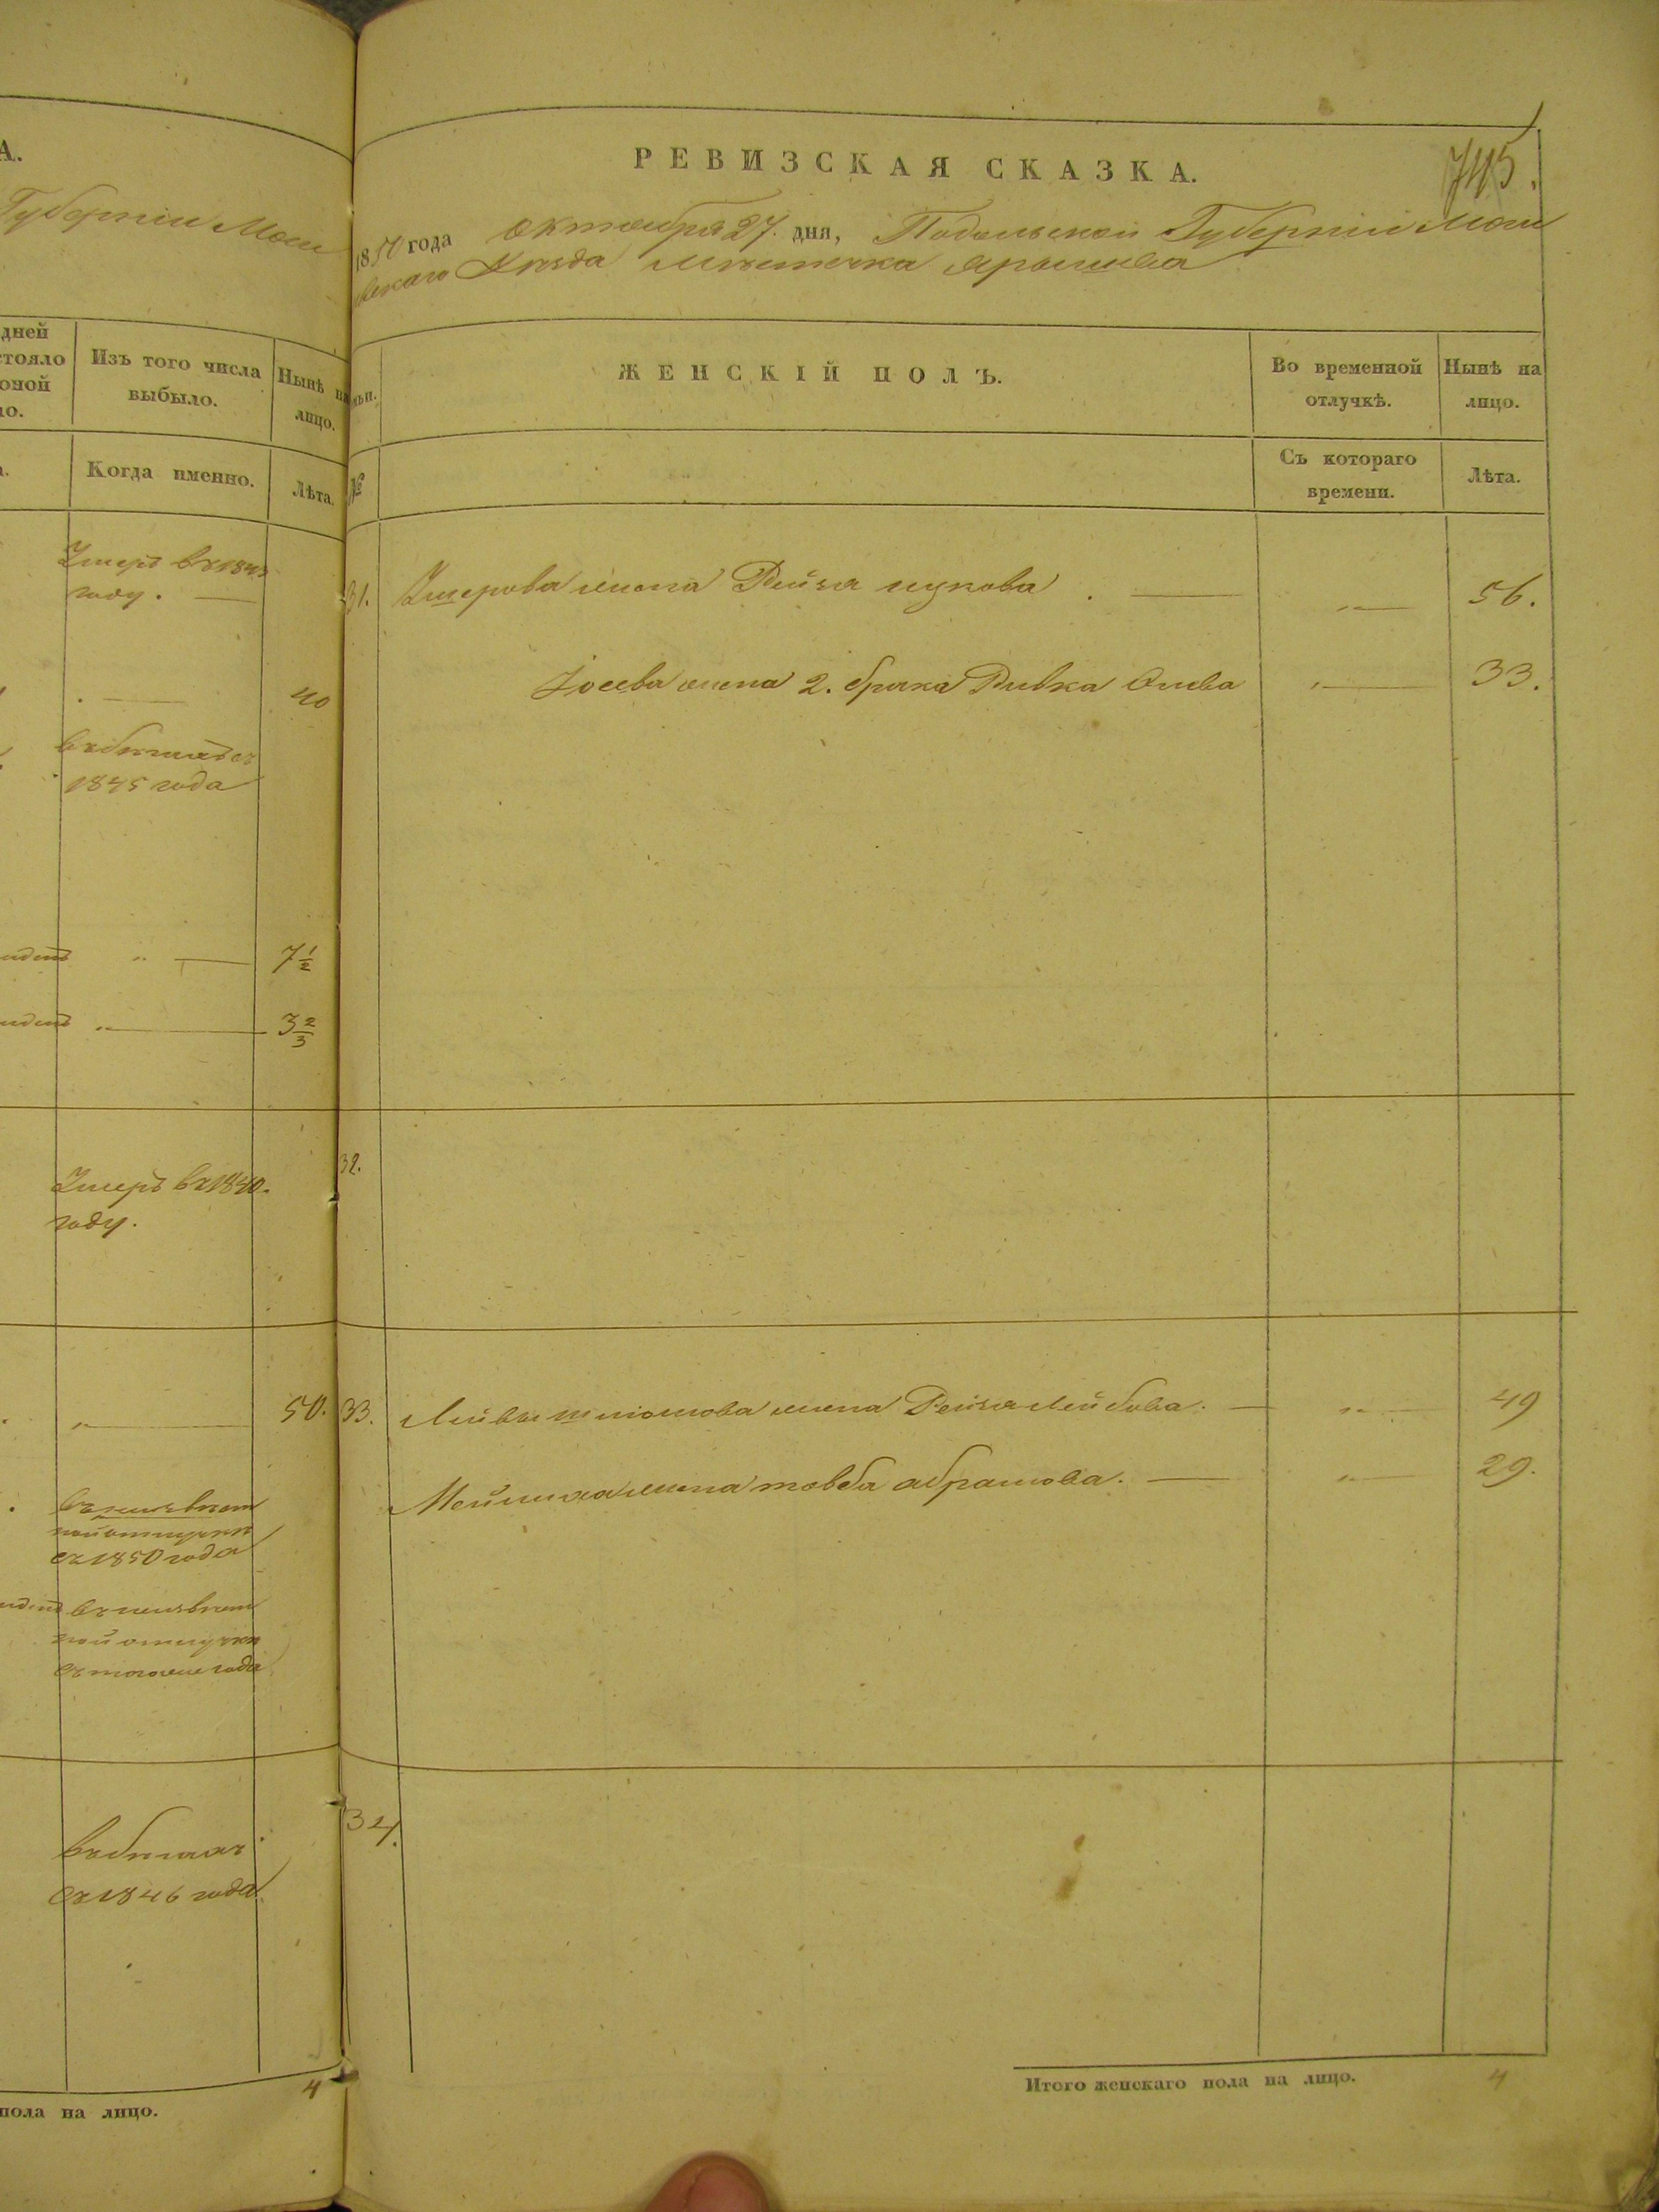 А.
Губернiи Мои
дней
стояло
оной
ло.
Изъ того числа
выбыло.
Нынѣ на
лицо.
Когда именно.
Лѣта.
Умеръ въ 184
году.
40
въ бегахъ съ
1845 года
7 1/2
3 2/3
Умеръ въ 1840.
году.
50.
въ неизвѣст
ной отлучкѣ
съ 1850 года
въ неизвѣст
ной отлучкѣ
съ того же года
въ бегахъ
съ 1846 года
4
пола на лицо.
РЕВИЗСКАЯ СКАЗКА.
745.
1850 года октября 27. дня, Подольской Губернiи Мои
вскаго Уѣзда мѣстечка Ярышева
ЖЕНСКІЙ ПОЛЪ.
Во временной
отлучкѣ.
Нынѣ на
лицо.
№
Съ котораго
времени.
Лѣта.
31. жена Рейзя 56.
жена 2. брака Ривка 33.
32.
33. жена Рейзя Лейбова. 49
жена товба абрамова. 29.
34.
Итого женскаго пола на лицо. 4